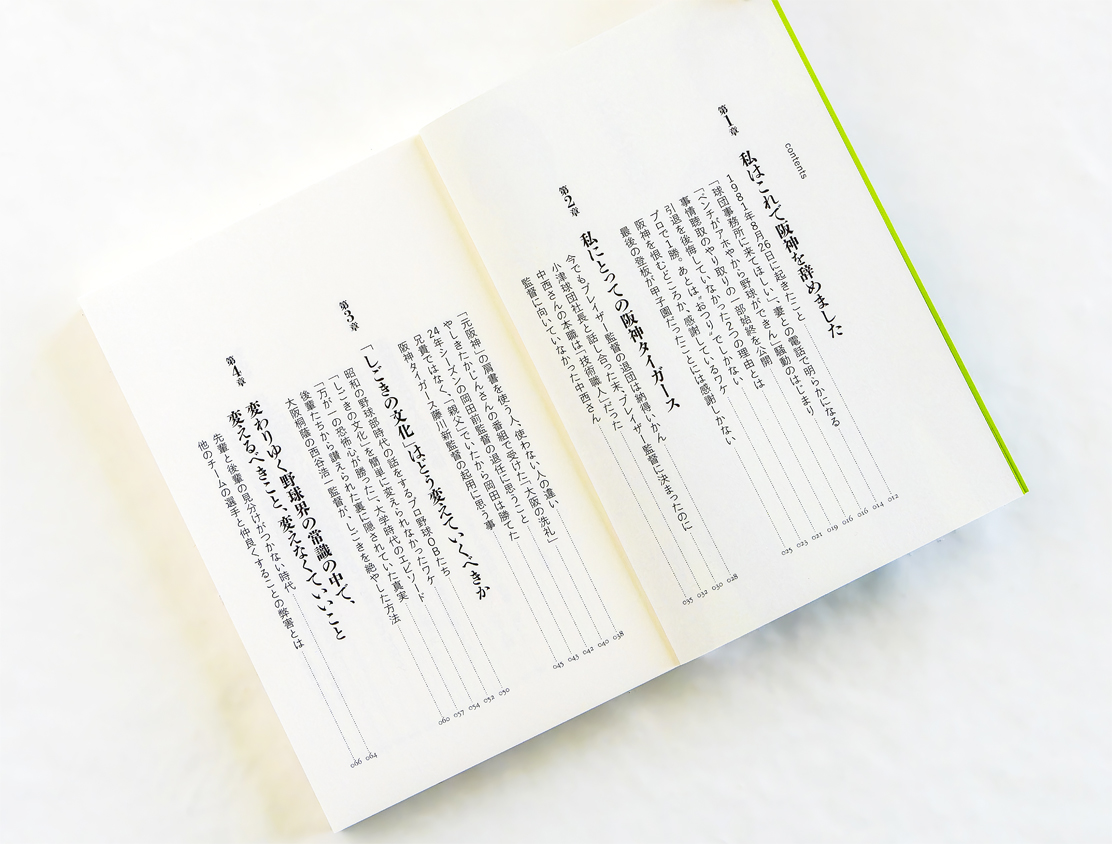 contents
第1章 私はこれで阪神を辞めました
1981年8月26日に起きたこと 012
「球団事務所に来てほしい」、妻との電話で明らかになる 014
「ベンチがアホやから野球ができん」騒動のはじまり 016
事情聴取のやり取りの一部始終を公開 016
引退を後悔していなかった2つの理由とは 019
プロで1勝。あとは“おつり”でしかない 021
阪神を恨むどころか、感謝しているワケ 023
最後の登板が甲子園だったことには感謝しかない 025
第2章 私にとっての阪神タイガース
今でもブレイザー監督の退団は納得いかん 028
小津球団社長と話し合った末、ブレイザー監督に決まったのに 030
中西さんの本職は「技術職人」だった 032
監督に向いていなかった中西さん 035
「元阪神」の肩書を使う人、使わない人の違い 038
やしきたかじんさんの番組で受けた「大阪の洗礼」 040
24年シーズンの岡田前監督の退任に思うこと 042
兄貴ではなく、「親父」でいたから岡田は勝てた 043
阪神タイガース・藤川新監督の起用に思う事 045
第3章 「しごきの文化」はどう変えていくべきか
昭和の野球部時代の話をするプロ野球OBたち 050
「しごきの文化」を簡単に変えられなかったワケ 052
「万が一の恐怖心が勝った」、大学時代のエピソード 054
後輩たちから讃えられた裏に隠されていた真実 057
大阪桐蔭の西谷浩一監督が、しごきを絶やした方法 060
第4章 変わりゆく野球界の常識の中で、
変えるべきこと、変えなくていいこと
先輩と後輩の見分けがつかない時代 064
他のチームの選手と仲良くすることの弊害とは 066